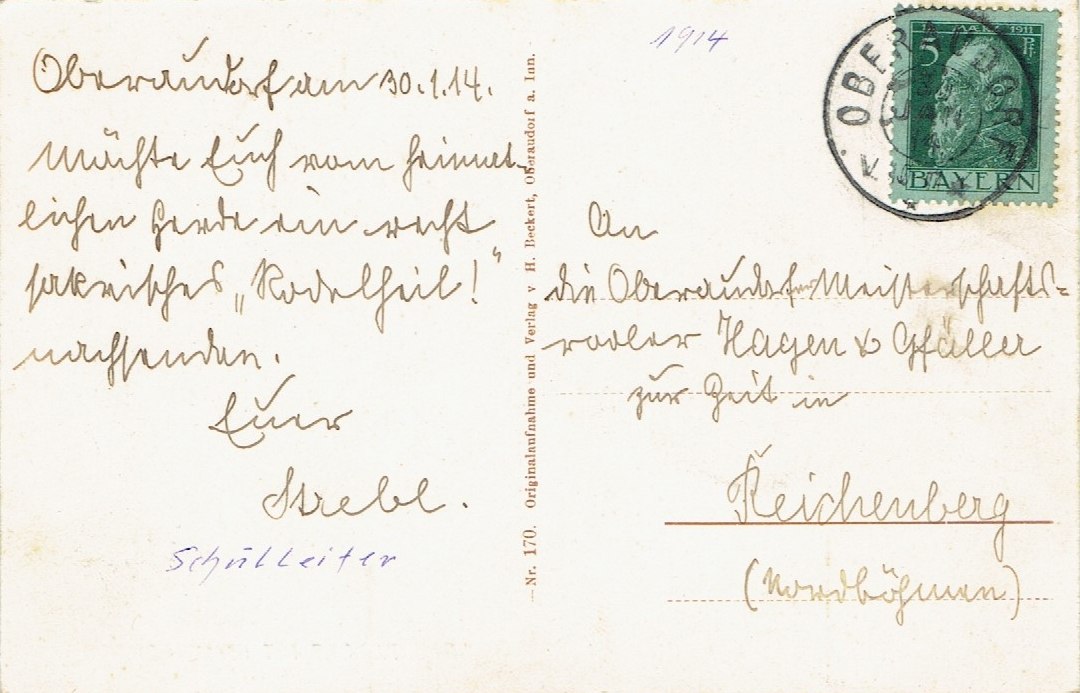 Oberaudorf am 30.1.14.
Möchte Euch vom heimat-
lichen Herde ein recht
sakrisches „Rodelheil!"
nachsenden.
Euer
Strebl.
Schulleiter
Nr. 170. Originalaufnahme und Verlag v H. Beckert, Oberaudorf a. Inn.
1914
5 1911 Pf
BAYERN
OBERAUDORF
An
die Oberaudorfer Meisterschafts-
rodler Hagen & Gfäller
zur Zeit in
Reichenberg
(Nordböhmen)